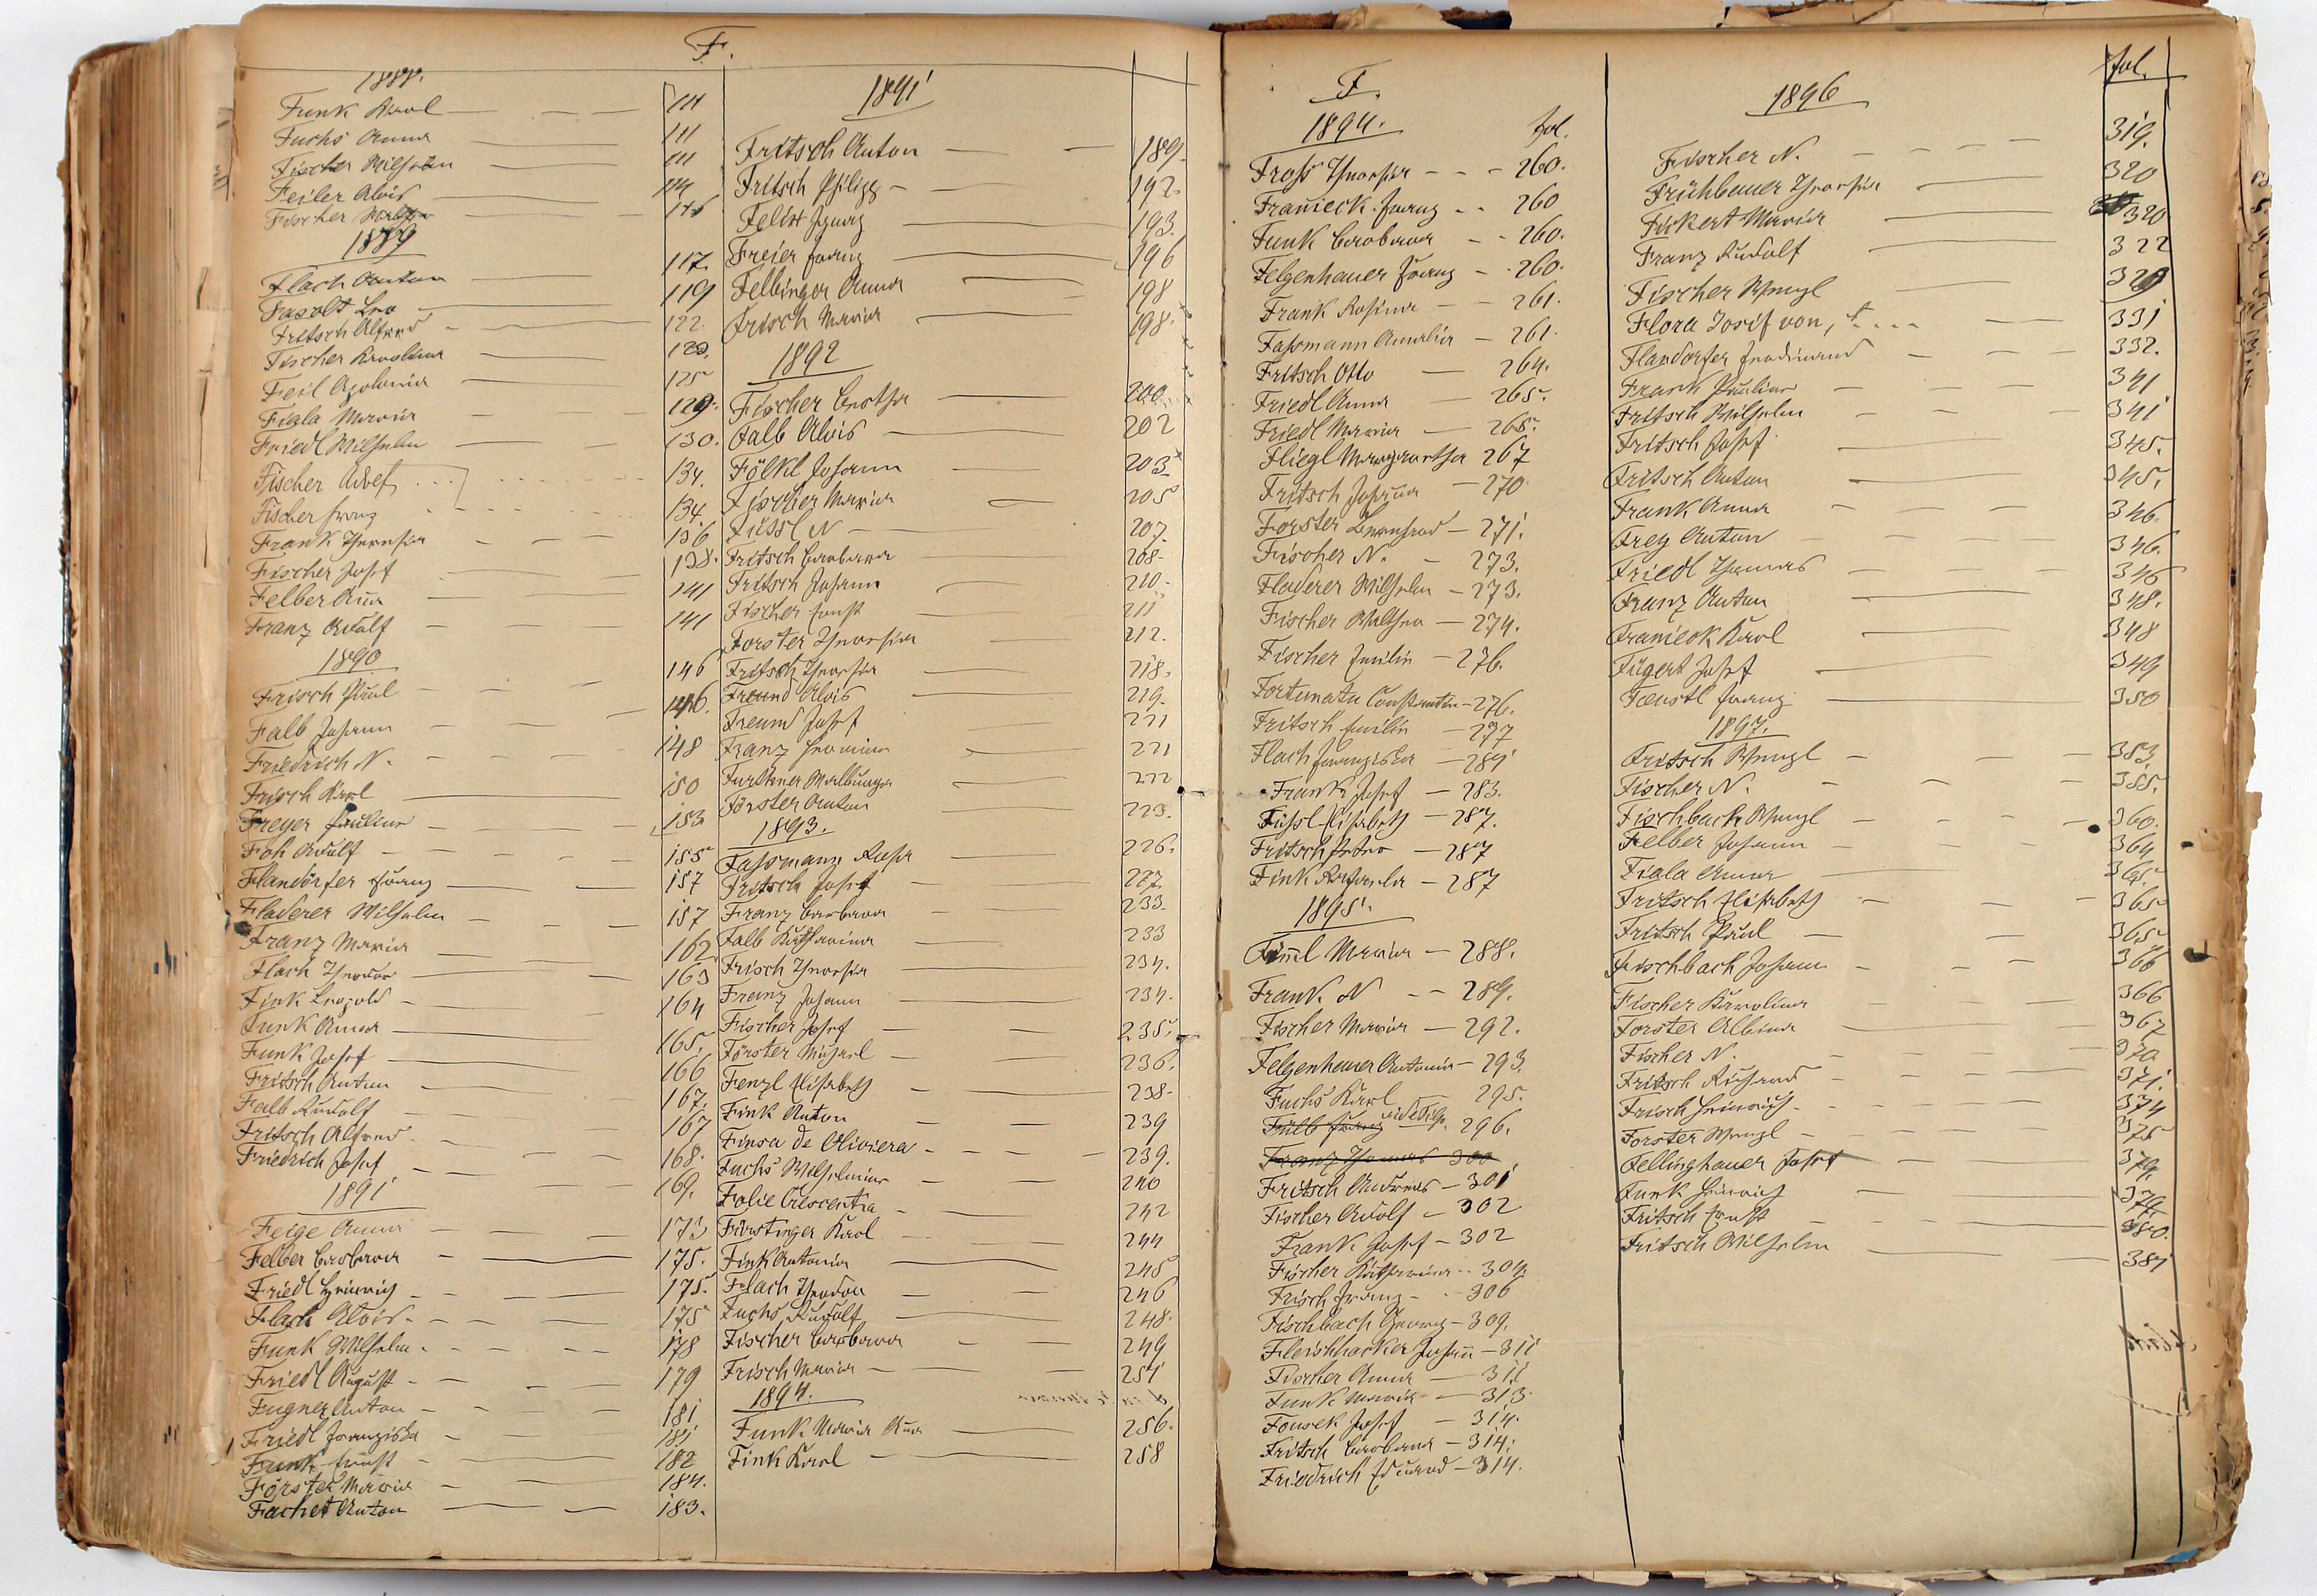 F.
1888.
Funk Karl 111
Fuchs Anna 111
Fischer Wilhelm 111
Feiler Alois 114
Fischer 116
1889
Flach Anton 117.
Fasolt Leo 119
Fritsch Alfred 122.
Fischer Karolina 123.
Feil Apolonia 125
Fiala Maria 129.
Friedl Wilhelm 130.
Fischer Adolf 134.
Fischer Franz 134.
Frank Theresia 136
Fischer Josef 138.
Felber Anna 141
Franz Adolf 141
1890
Frisch Paul 146
Falb Johann 146.
Friedrich N. 148
Frisch Karl 150
Freyer Pauline 153
Foh Adolf 155
Flandorfer Franz 157
Fladerer Wilhelm 157
Franz Maria 162
Flach Theodor 163
Fink Leopold 164
Funk Anna 165.
Funk Josef 166
Fritsch Anton 167.
Falb Rudolf 167
Fritsch Alfred 168.
Friedrich Josef 169.
1891
Feige Anna 173
Felber Barbara 175.
Friedl Heinrich 175.
Flach Alois 175
Funk Wilhelm 178
Friedl August 179
Fugner Anton 181
Friedl Franziska 181
Funk Ernst 182
Förster Maria 184.
Fachet Anton 183.
1891
Fritsch Anton 189.
Fritsch Philipp 192.
Felix Ignaz 193.
Freier Franz 196
Felbinger Anna 198
Frisch Maria 198.
1892
Fischer Bertha 200
Falb Alois 202
Fölkl Johann 203
Fischer Maria 205
Füssl N 207.
Fritsch Barbara 208.
Fritsch Johann 210.
Fischer Ernst 211
Forster Theresia 212.
Fritsch Theresia 218.
Freund Alois 219.
Freund Josef 221
Franz Hermine 221
Furthner Walburga 222
Förster Anton 223.
1893.
Fassmann Rosa 226.
Fritsch Josef 227.
Franz Barbara 233.
Falb Katharina 233
Frisch Theresia 234.
Franz Johann 234.
Fischer Josef 235.
Förster Michael 236.
Fenzl Elisabeth 238.
Fink Anton 239
Finsa de Oliviera 239.
Fuchs Wilhelmine 240
Folie Crescentia 242
Fürstinger Karl 244
Fink Antonia 245
Flach Theodor 246
Fuchs Rudolf 248.
Fischer Barbara 249
Frisch Maria 251
1894.
Funk Maria Anna 256.
Fink Karl 258
F.
1894. fol.
Fross Theresia 260.
Franieck Franz 260
Funk Barbara 260.
Felgenhauer Franz 260.
Frank Rosina 261.
Fassmann Amalia 261.
Fritsch Otto 264.
Friedl Anna 265.
Friedl Maria 265.
Fliegl Margaretha 267
Fritsch Johanna 270
Forster Bernhard 271.
Fischer N. 273.
Fladerer Wilhelm 273.
Fischer Walther 274.
Fischer Emilie 276.
Fortunatu Constantin 276.
Fritsch Emilie 277
Flach Franziska 281
Frank Josef 283.
Füssl Elisabeth 287.
Fritsch Peter 287
Fink Rafaela 287
1895.
Fiml Maria 288.
Frank N 289.
Fischer Maria 292.
Felgenhauer Antonia 293.
Fuchs Karl 295.
Fülb Franz 296.
Franz Thomas 300
Fritsch Andreas 301
Fischer Adolf 302
Frank Josef 302
Fischer Katharina 304.
Frisch Franz 306
Fischbach Georg 309.
Fleischhacker Johann 311
Fischer Anna 311
Funk Maria 313.
Fousek Josef 314.
Fritsch Barbara 314.
Friedrich Eduard 314.
1896 fol.
Fischer N. 319.
Frühbauer Theresia 320
Fickert Maria 320
Franz Rudolf 322
Fischer Wenzl 329
Flora Josif von, 331
Flandorfer Ferdinand 332.
Frank Pauline 341
Fritsch Wilhelm 341
Fritsch Josef 345.
Fritsch Anton 345.
Frank Anna 346.
Frey Anton 346.
Friedl Thomas 346
Franz Anton 348.
Franieck Karl 348
Fügert Josef 349
Faustl Franz 350
1897.
Fritsch Wenzl 353.
Fischer N. 355.
Fischbach Wenzl 360.
Felber Johann 364
Fiala Anna 365
Fritsch Elisabeth 365
Fritsch Paul 365
Fischbach Johann 366
Fischer Karolina 366
Forster Albina 367
Fischer N. 370
Fritsch Richard 371.
Frisch Heinrich 374
Forster Wenzl 375
Fellinghauer Josef 379.
Funk Heinrich 379.
Fritsch Ernst 380.
Fritsch Wilhelm 381